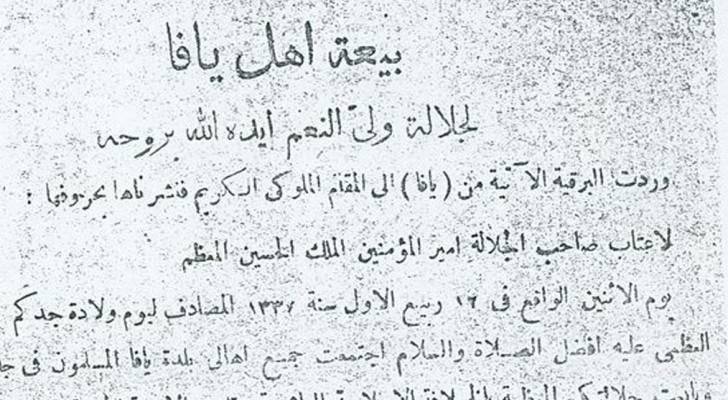 بيعة اهل يافا
لجلالة ولىّ النعم أيده الله بروحه
وردت البرقية الآتية من (يافا) الى المقام الملوكى الكريم فنشرناها بحروفها :
لاعتاب صاحب الجلالة امير المؤمنين الملك الحسين المعظم
يوم الاثنين الواقع فى ١٢ ربيع الاول سنة ١٣٣٧ المصادف ليوم ولادة جدكم
العظمى عليه افضل الصلاة والسلام اجتمعت جميع اهالى بلدة يافا المسلمون فى